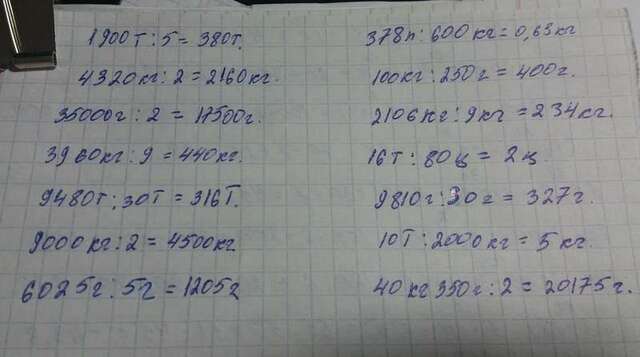 1900т : 5 = 380т.
4320кг : 2 = 2160кг.
35000г : 2 = 17500г.
3960кг : 9 = 440кг.
9480т : 30т = 316т.
9000кг : 2 = 4500кг
6025г : 5г = 1205г
378п : 600кг = 0,63кг
100кг : 250г = 400г.
2106кг : 9кг = 234кг.
16т : 80ц = 2ц
9810г : 30г = 327г.
10т : 2000кг = 5кг.
40кг 350г : 2 = 20175г.